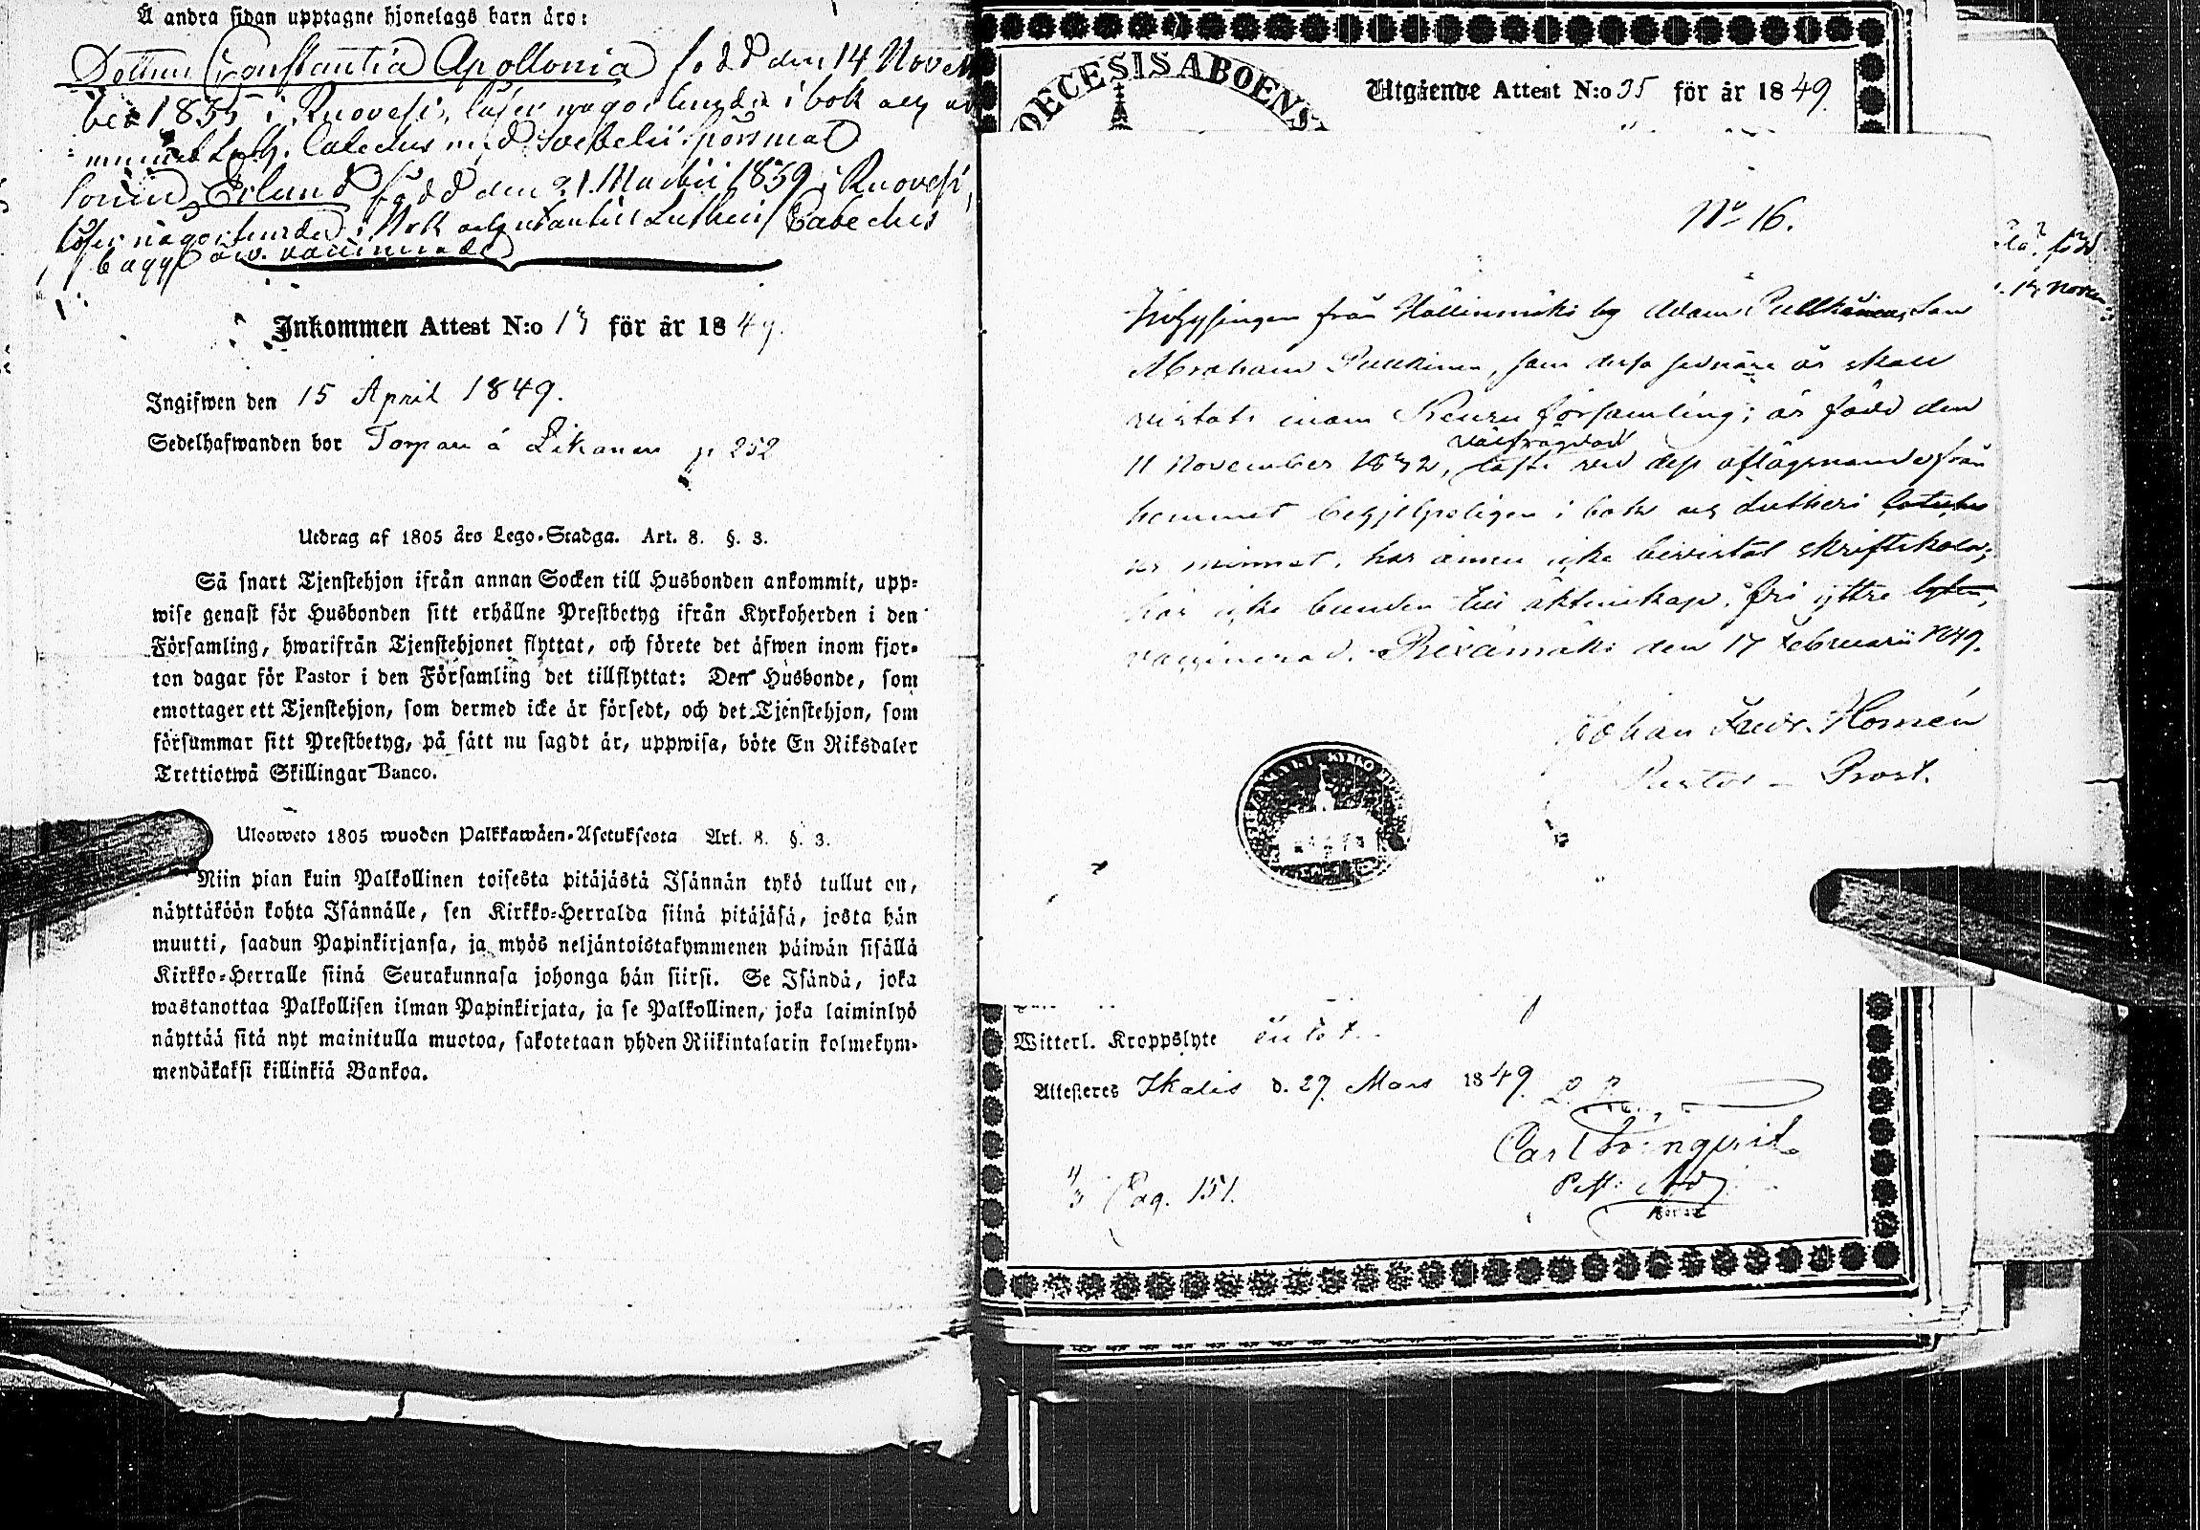 Å andra sidan upptagne hjonelags barn äro:
Dottren Constantia Apollonia född den 14 Novem
ber 1835 i Ruovesi, läser någorlunda i bok och
Luth. Cateches med Svebelii spörsmål
Sonen Erlund född den 21 Martii 1839 i Ruovesi,
läser någorlunda i bok och utantill Lutheri Cateches
bägge äro vaccinerade
Inkommen Attest N:o 13 för år 1849.
Ingifwen den 15 April 1849.
Sedelhafwanden bor Torpare å Likanen p 252
Utdrag af 1805 års Lego-Stadga. Art. 8. §. 3.
Så snart Tjenstehjon ifrån annan Socken till Husbonden ankommit, upp-
wise genast för Husbonden sitt erhållne Prestbetyg ifrån Kyrkoherden i den
Församling, hwarifrån Tjenstehjonet flyttat, och förete det äfwen inom fjor-
ton dagar för Pastor i den Församling det tillflyttat: Den Husbonde, som
emottager ett Tjenstehjon, som dermed icke är försedt, och det Tjenstehjon, som
försummar sitt Prestbetyg, på sätt nu sagdt är, uppwisa, böte En Riksdaler
Trettiotwå Skillingar Banco.
Ulosweto 1805 wuoden Palkkawäen-Asetuksesta Art. 8. §. 3.
Niin pian kuin Palkollinen toisesta pitäjästä Isännän tykö tullut on,
näyttäköön kohta Isännälle, sen Kirkko-Herralda siinä pitäjäsä, josta hän
muutti, saadun Papinkirjansa, ja myös neljäntoistakymmenen päiwän sisällä
Kirkko-Herralle siinä Seurakunnasa johonga hän siirsi. Se Isändä, joka
wastanottaa Palkollisen ilman Papinkirjata, ja se Palkollinen, joka laiminlyö
näyttää sitä nyt mainitulla muotoa, sakotetaan yhden Riikintalarin kolmekym-
mendäkaksi killinkiä Bankoa.
OECESIS ABOENS
Utgående Attest N:o 35 för år 1849.
No 16.
född
14 Novem
Inhysingen från Hällinmäki by Adam Pulkkinens Son
Abraham Pulkkinen, som dessa sednare år skall
vistats inom Keuru församling; är född den
välfrägdad
11 November 1832, läste vid dess aflägsnande från
hemmet begripeligen i bok och Lutheri Cateches
ur minnet, har ännu icke bevistat skriftskola;
här icke bunden till äktenskap, fri yttre lyten,
vaccinerad. Rexämäki den 17 Februarii 1849.
Johan Fredr. Homén
Pastor Prost.
KYRKO
Witterl. Kroppslyte intet.
Attesteres Ikalis d. 27 Mars 1849.
Carl Lönnqvist
Pag. 151.